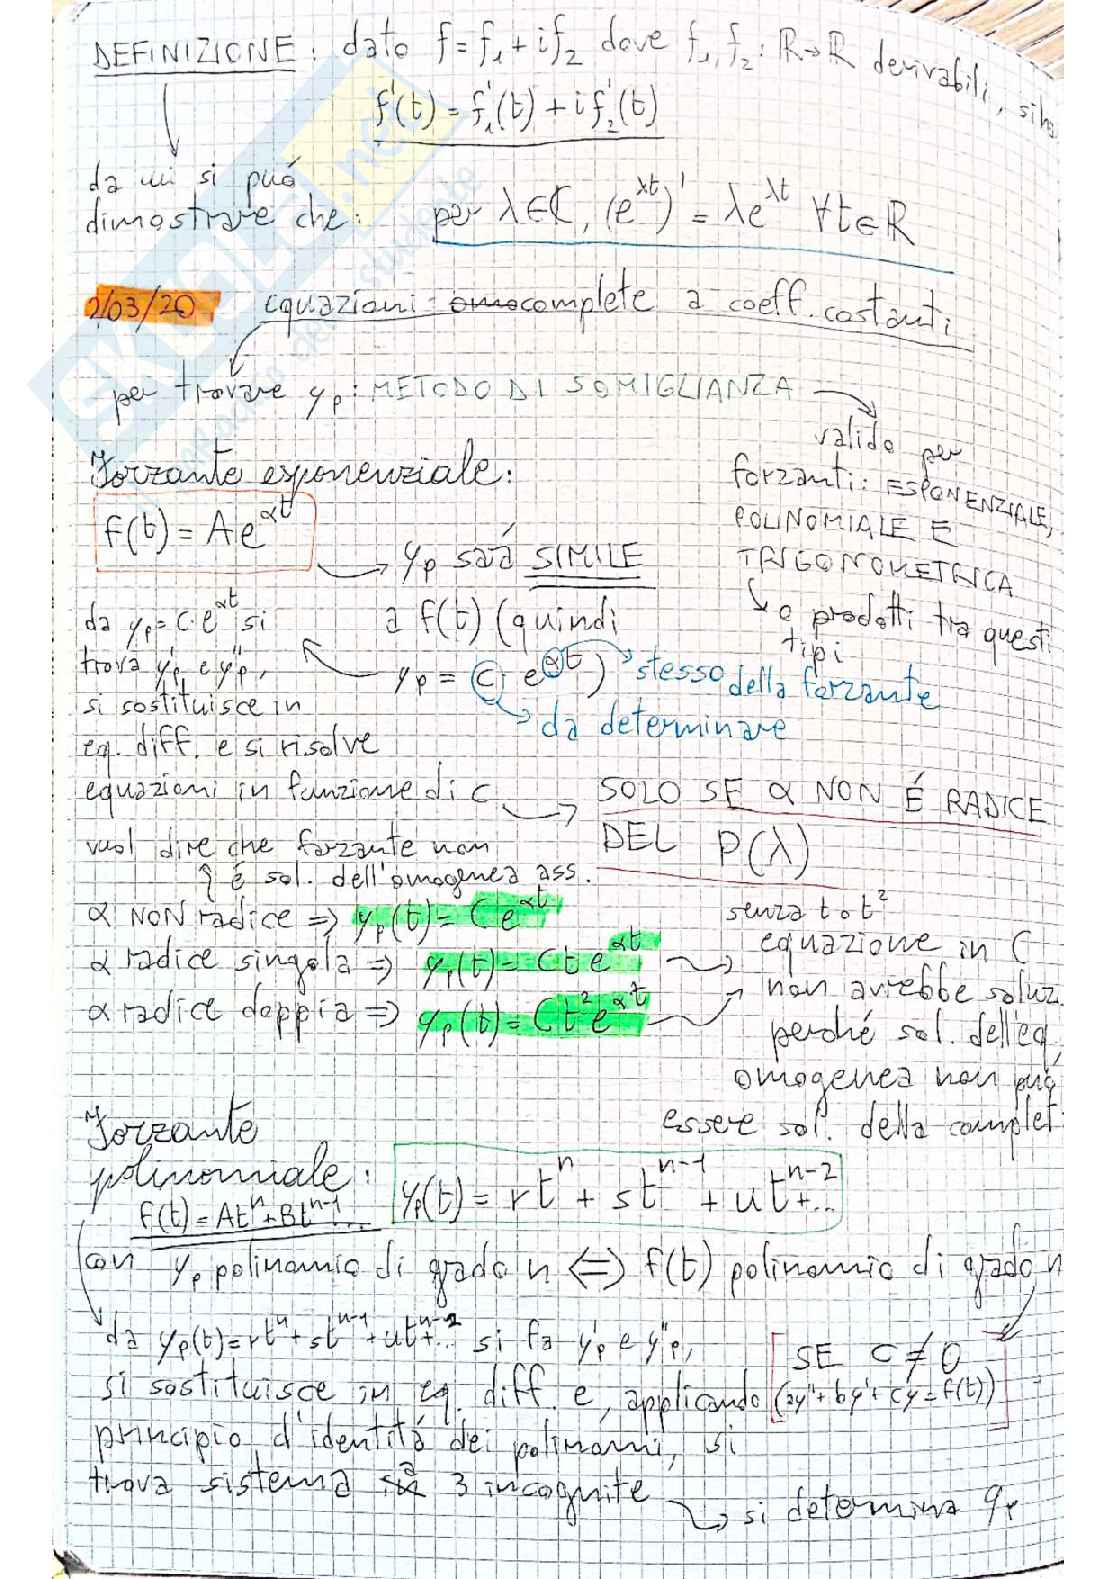 DEFINIZIONE: dato f = f₁ + if₂ dove f₁, f₂: ℝ→ℝ derivabili, si ha
f'(t) = f₁'(t) + i f₂'(t)
da cui si puó
dimostrare che: per λ∈ℂ, (e^λt)' = λe^λt ∀t∈ℝ
2/03/20 equazioni complete a coeff. costanti
per trovare yp: METODO DI SOMIGLIANZA
valido per
forzanti: ESPONENZIALE,
POLINOMIALE E
TRIGONOMETRICA
o prodotti tra questi
tipi
Forzante esponenziale:
f(t) = Ae^αt
yp sará SIMILE
a f(t) (quindi
yp = C·e^αt) stesso della forzante
da determinare
da yp = C·e^αt si
trova y'p e y''p,
si sostituisce in
eq. diff. e si risolve
equazioni in funzione di C
SOLO SE α NON É RADICE
DEL P(λ)
vuol dire che forzante non
é sol. dell'omogenea ass.
α NON radice => yp(t) = Ce^αt
α radice singola => yp(t) = Cte^αt
α radice doppia => yp(t) = Ct²e^αt
senza t o t²
equazione in C
non avrebbe soluz.
perché sol. dell'eq.
omogenea non puó
essere sol. della complet
Forzante
polinomiale:
f(t) = At^n + Bt^n-1 ...
yp(t) = rt^n + st^n-1 + ut^n-2 + ...
con yp polinomio di grado n <=> f(t) polinomio di grado n
da yp(t) = rt^n + st^n-1 + ut^n-2 + ... si fa y'p e y''p,
si sostituisce in eq. diff. e, applicando
principio d'identitá dei polinomi, si
trova sistema a 3 incognite
si determina yp
SE C ≠ 0
(ay'' + by' + cy = f(t))